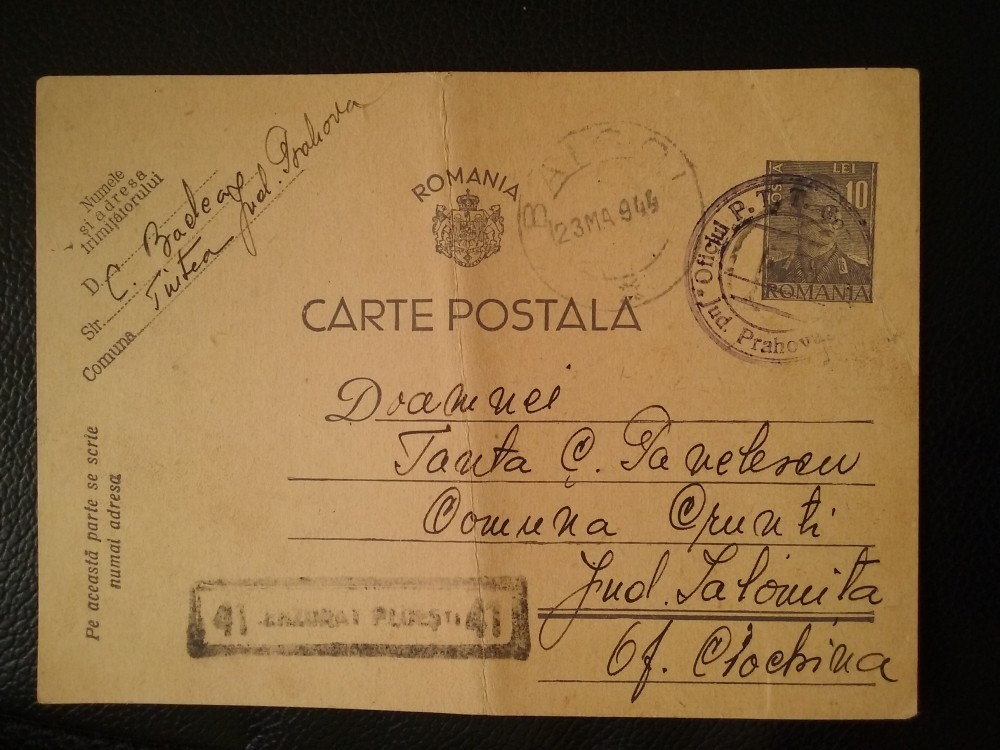 Numele
și adresa
trimițătorului
D. C.
Str. Tintea
Comuna Jud. Prahova
ROMANIA
CARTE POSTALA
23 MA 944
POSTA LEI
10
ROMANIA
Oficiul P. T. T.
Jud. Prahova
Doamnei
Tanta C. Panelescu
Comuna Crunti
Jud. Ialomita
Of. Ciochina
Pe această parte se scrie
numai adresa
41 CENZURAT PLOEȘTI 41